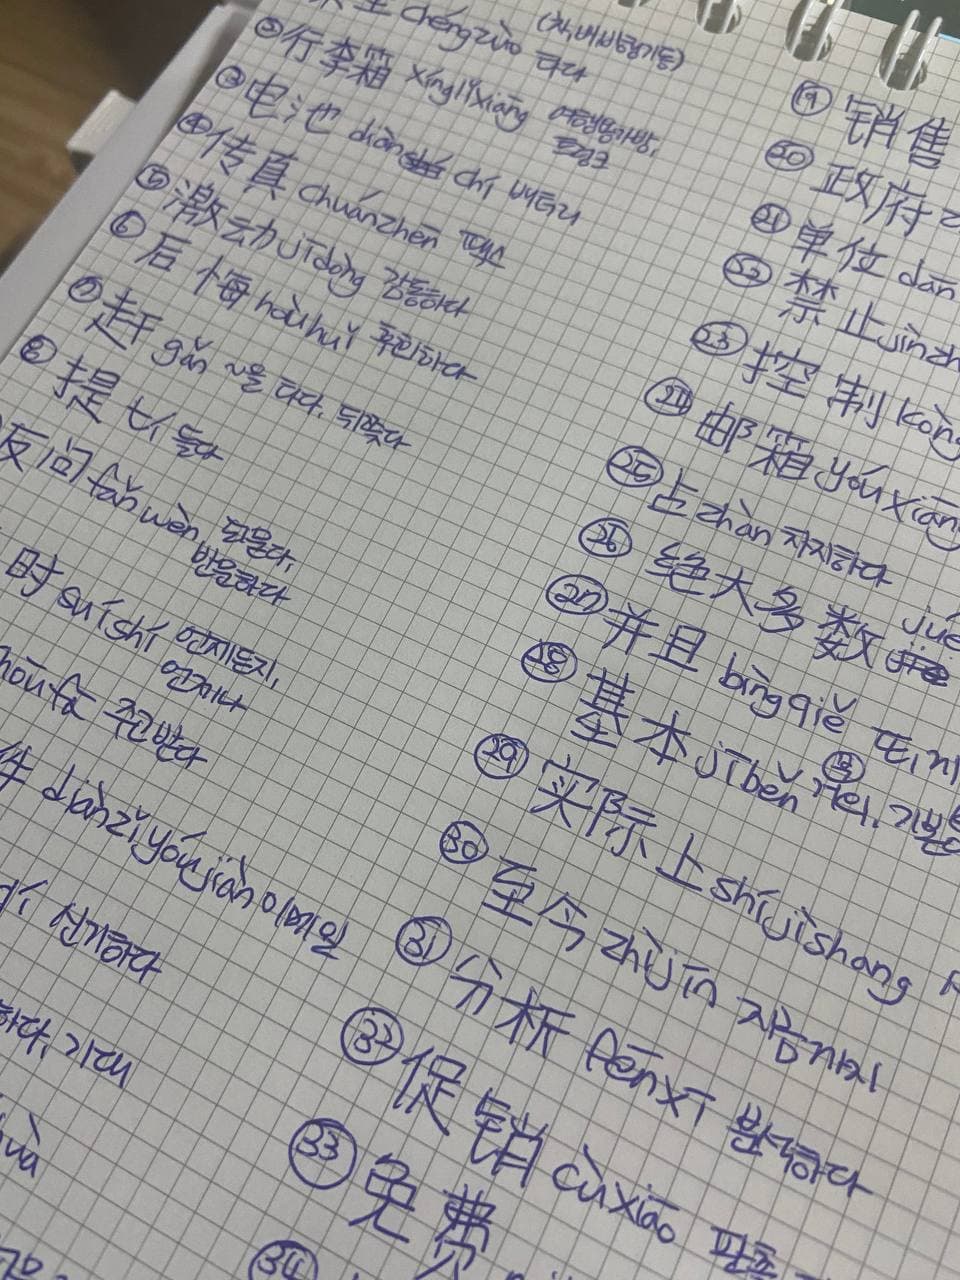 chéngzuò (차, 배, 비행기 등)
타다
② 行李箱 xínglǐxiāng 여행용가방,
트렁크
③ 电池 diàn chí 배터리
④ 传真 chuánzhēn 팩스
⑤ 激动 jīdòng 감동하다
⑥ 后悔 hòuhuǐ 후회하다
⑦ 赶 gǎn ~을 타다. 뒤쫓다
⑧ 提 tí 들다
反问 fǎnwèn 되묻다,
반문하다
时 suíshí 언제든지,
언제나
shōufā 주고받다
件 diànzǐyóujiàn 이메일
신기하다
하다, 기대
huà
⑲ 销售
⑳ 政府
㉑ 单位 dān
㉒ 禁止 jìnzh
㉓ 控制 kòng
㉔ 邮箱 yóuxiāng
㉕ 占 zhàn 차지하다
㉖ 绝大多数 jué
㉗ 并且 bìngqiě 또, 게
㉘ 基本 jīběn 기본
㉙ 实际上 shíjìshang
㉚ 至今 zhìjīn 지금까지
㉛ 分析 fēnxī 분석하다
㉜ 促销 cùxiāo 판촉
㉝ 免费
㉞